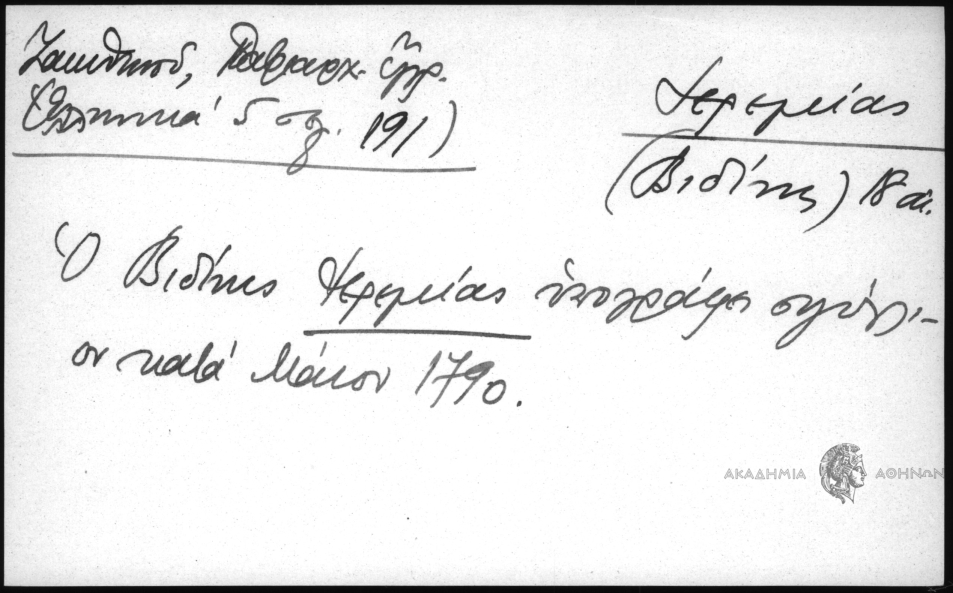 Ζακυθηνοῦ, Πατριαρχ. Ἔγγρ.
Ἑλληνικά 5 σελ. 191)
Ἱερεμίας
(Βιδίνης) 18 αἰ.
Ὁ Βιδίνης Ἱερεμίας ὑπογράφει σιγίλλι-
ον κατά Μάϊον 1790.
ΑΚΑΔΗΜΙΑ ΑΘΗΝΩΝ